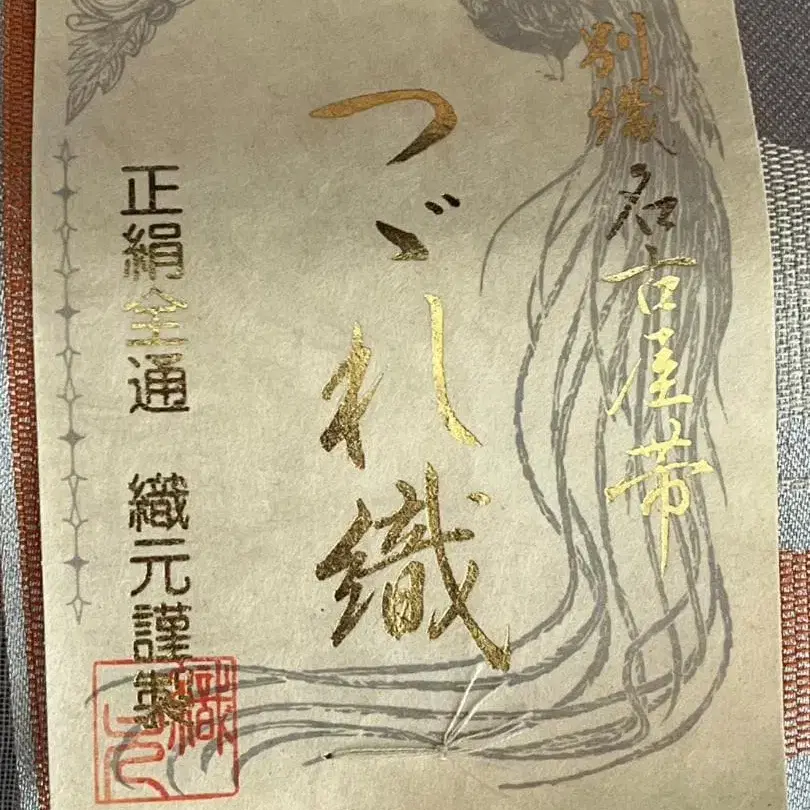 別織名古屋帯
つゞれ織
正絹全通　織元謹製
織元